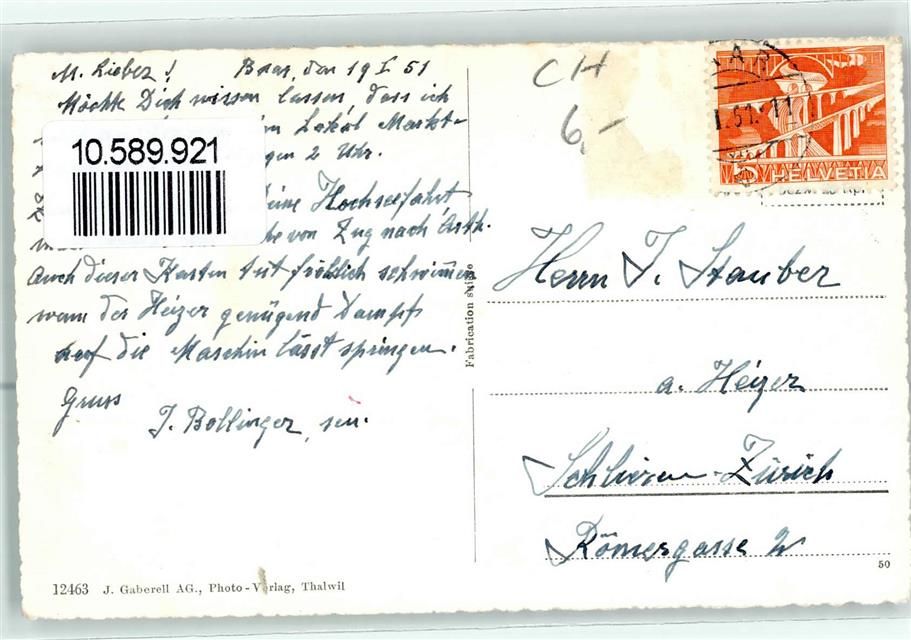 M. Lieber! Baar, den 19 I 51
Möchte Dich wissen lassen, dass ich
Lokal Markt-
2 Uhr.
eine Hochseefahrt
von Zug nach Arth.
Auch dieser Kasten tut fröhlich schwimmen
wann der Heizer genügend Dampf
auf die Maschin lässt springen.
Gruss
J. Bollinger, sen.
10.589.921
CH
6,-
AAR
I. 51.-11
5 HELVETIA
Herrn J. Stauber
a. Heizer
Schlieren-Zürich
Römergasse 2
Fabrication suisse
50
12463 J. Gaberell AG., Photo-Verlag, Thalwil